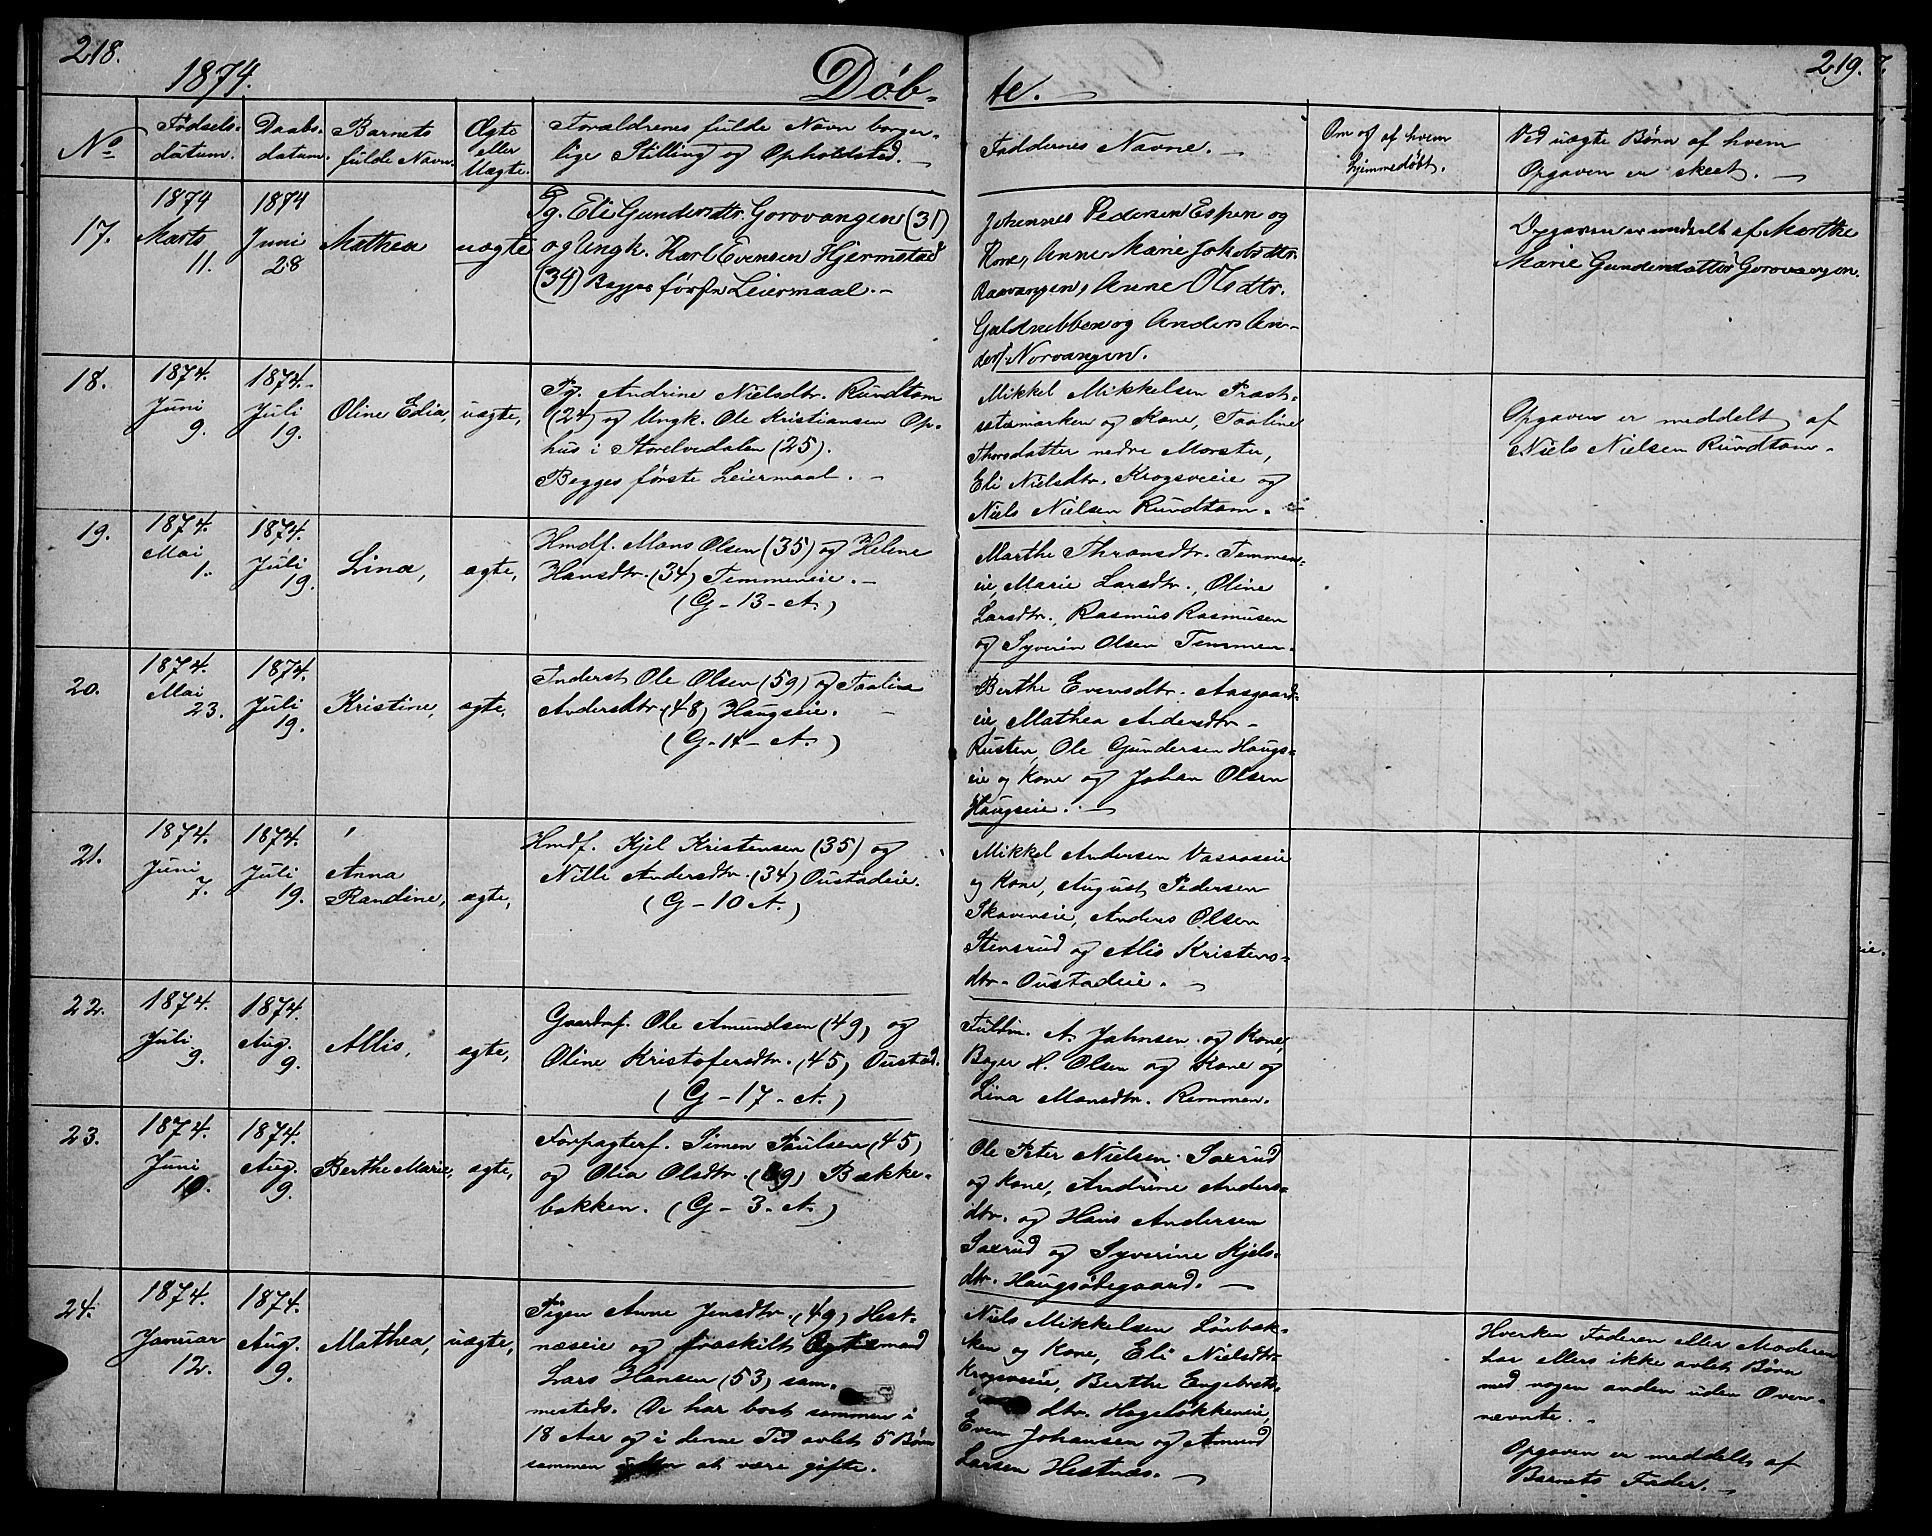 218.
1874.
Døb-
te.
219.
No
Fødsels-
datum.
Daabs-
datum.
Barnets
fulde Navn.
Ægte
eller
Uægte.
Forældrenes fulde Navn borger-
lige Stilling og Opholdsted.
Faddernes Navne.
Om og af hvem
hjemmedøbt.
Ved uægte Børn af hvem
Opgaven er skeet.
17.
1874
Marts
11.
1874
Juni
28
Mathea
uægte
Pg. Eli Gundersdtr. Gorovangen (31)
og Ungk. Karl Evensen Hjermstad
(34) Begges før Leiermaal.
Johennes Pedersen Espen og
Kone, Anne Marie Jakobsdtr.
Raavangen, Anne Olsdtr.
Guldnebben og Anders An-
ders. Norvangen.
Opgaven er meddelt af Marthe
Marie Gundersdatter Gorovangen.
18.
1874.
Juni
9.
1874.
Juli
19.
Oline Edia,
uægte,
Pg. Andrine Nielsdtr. Rundtom
(24) og Ungk. Ole Kristiansen Op-
hus i Storelvedalen (25).
Begges første Leiermaal.
Mikkel Mikkelsen Præst-
sætermarken og Kone, Taaline
Thorsdatter nedre Morstu,
Eli Nielsdtr. Krogsveie og
Niels Nielsen Rundtom.
Opgaven er meddelt af
Niels Nielsen Rundtom.
19.
1874.
Mai
1.
1874.
Juli
19.
Lina,
ægte,
Hmdf. Mons Olsen (35) og Helene
Hansdtr. (34) Temmeneie.
(G-13-A.)
Marthe Thronsdtr. Temmen-
eie, Marie Larsdtr., Oline
Larsdtr., Rasmus Rasmusen
og Syverin Olsen Temmen.
20.
1874.
Mai
23.
1874.
Juli
19.
Kristine,
ægte,
Inderst Ole Olsen (59) og Taalina
Andersdtr. (48) Haugseie.
(G-14-A.)
Berthe Evensdtr. Aasgaard-
eie, Mathea Andersdtr.
Rusten, Ole Gundersen Haugs-
eie og Kone og Johan Olsen
Haugseie.
21.
1874.
Juni
7.
1874.
Juli
19.
Anna
Randine,
ægte,
Hmdf. Kjel Kristensen (35) og
Nille Andersdtr. (34) Oustadeie.
(G-10 A.)
Mikkel Andersen Vasaaseie
og Kone, August Pedersen
Skaveneie, Anders Olsen
Stensrud og Alis Kristens-
dtr. Oustadeie.
22.
1874.
Juli
9.
1874.
Aug.
9.
Allis,
ægte,
Gaardmf. Ole Amundsen (49) og
Oline Kristofersdtr. (45) Oustad.
(G-17-A.)
Fuldm. A. Jahnsen og Kone,
Bager H. Olsen og Kone og
Lina Monsdtr. Remmen.
23.
1874.
Juni
10.
1874.
Aug.
9.
Berthe Marie,
ægte,
Forpagterf. Simen Paulsen (45)
og Olia Olsdtr. Bække-
bakken. (G-3-A.)
Ole Peter Nielsen Saxrud
og Kone, Andrine Anders-
dtr. og Hans Andersen
Saxrud og Syverine Kjels-
dtr. Haugsødegaard.
24.
1874.
Januar
12.
1874.
Aug.
9.
Mathea,
uægte,
Pigen Anne Jensdtr. (49) Hest-
næseie og fraskilt Ægtemand
Lars Hansen (53) sam-
mesteds. De har boet sammen i
18 Aar og i denne Tid avlet 5 Børn
sammen uden at være gifte.
Niels Mikkelsen Lørbak-
ken og Kone, Eli Nielsdtr.
Krogsveie, Berthe Engebrets-
dtr. Hageløkkeneie,
Even Johansen og Amund
Larsen Hestnæs.
Hverken Faderen eller Moderen
har ellers ikke avlet Børn
med nogen anden uden Oven-
nævnte.
Opgaven er meddelt af
Barnets Fader.